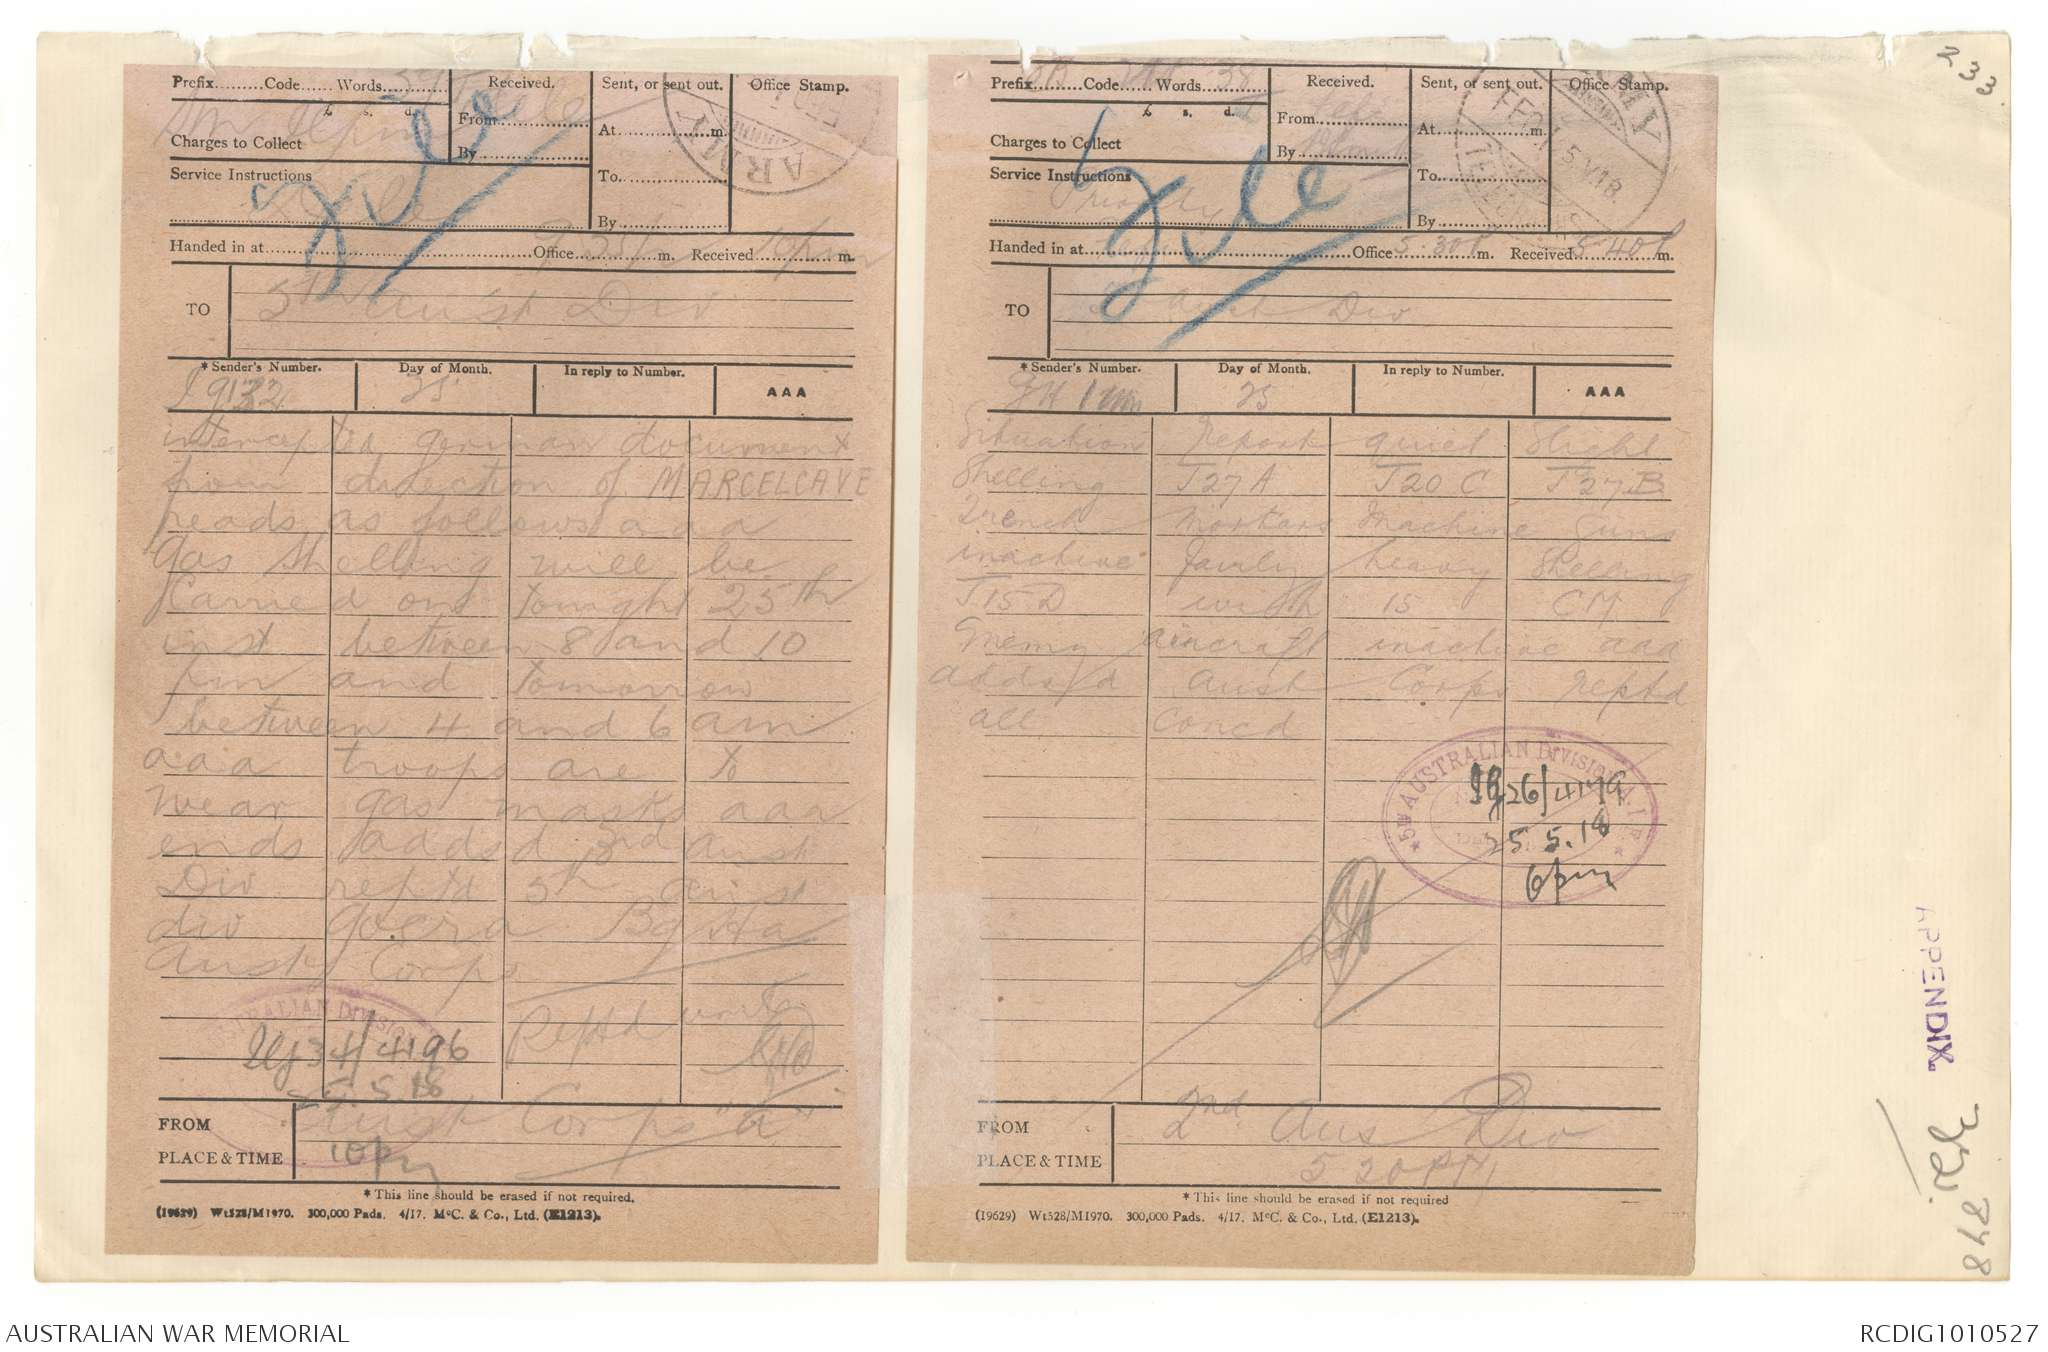 233.
Prefix.........Code......Words...............
Received.
Sent, or sent out.
Office Stamp.
£ s. d.
From................
At................m.
Charges to Collect
By................
Service Instructions
To................
By................
ARMY
File
Handed in at................Office 9 35 p m. Received 10 pm m.
TO
5th Aust Div
* Sender's Number.
Day of Month.
In reply to Number.
AAA
25
intercepted german document
from direction of MARCELCAVE
reads as follows aaa
gas shelling will be
Carried out tonight 25th
inst between 8 and 10
pm and tomorrow
between 4 and 6 am
aaa troops are to
wear gas masks aaa
ends addsd 3rd Aust
Div reptd 5th Aust
div
Aust Corps
Reptd
AUSTRALIAN DIVISION
34/4196
25.5.18
10pm
FROM
Aust Corps "a"
PLACE & TIME
* This line should be erased if not required.
(19629) Wt528/M1970. 300,000 Pads. 4/17. McC. & Co., Ltd. (E1213).
Prefix.........Code......Words 38
Received.
Sent, or sent out.
Office Stamp.
£ s. d.
From................
At................m.
Charges to Collect
By................
Service Instructions
To................
Priority
By................
ARMY
25.V.18.
TELEGRAPHS
File
Handed in at................Office 5.30 p m. Received 5 40 p m.
TO
Aust Div
* Sender's Number.
Day of Month.
In reply to Number.
AAA
25
Situation Report quiet Slight
Shelling J27A J20 C J27B
Trench Mortars Machine Guns
inactive Fairly heavy Shelling
J15D with 15 CM
Enemy aircraft inactive aaa
addsd Aust Corps reptd
all concd
5TH AUSTRALIAN DIVISION A.I.F.
26/4179
25.5.18
6pm
FROM
2nd Aus Div
PLACE & TIME
5 20 PM
* This line should be erased if not required
(19629) Wt528/M1970. 300,000 Pads. 4/17. McC. & Co., Ltd. (E1213).
APPENDIX
348
AUSTRALIAN WAR MEMORIAL
RCDIG1010527